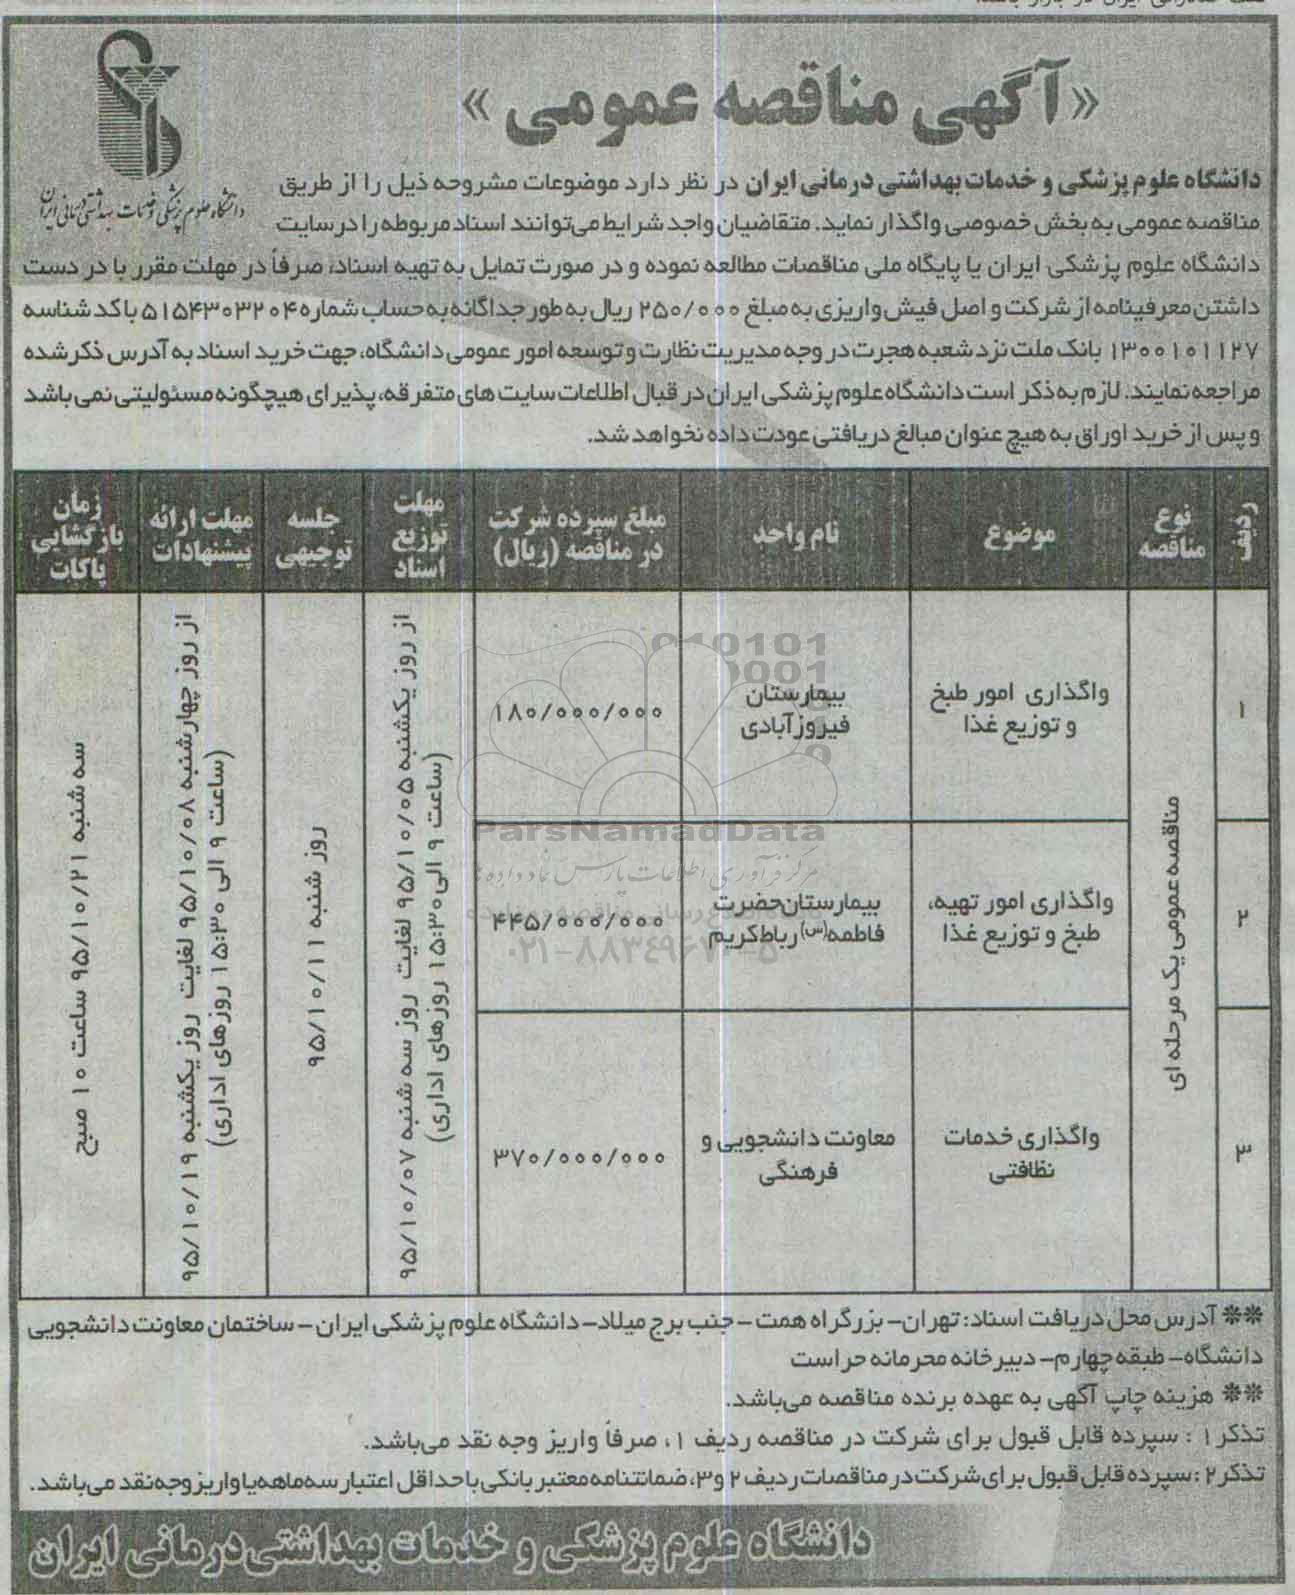 «آگهی مناقصه عمومی»
دانشگاه علوم پزشکی و خدمات بهداشتی درمانی ایران
دانشگاه علوم پزشکی و خدمات بهداشتی درمانی ایران در نظر دارد موضوعات مشروحه ذیل را از طریق
مناقصه عمومی به بخش خصوصی واگذار نماید. متقاضیان واجد شرایط می‌توانند اسناد مربوطه را در سایت
دانشگاه علوم پزشکی ایران یا پایگاه ملی مناقصات مطالعه نموده و در صورت تمایل به تهیه اسناد، صرفاً در مهلت مقرر با در دست
داشتن معرفینامه از شرکت و اصل فیش واریزی به مبلغ ۲۵۰/۰۰۰ ریال به طور جداگانه به حساب شماره ۵۱۵۴۳۰۳۲۰۴ با کد شناسه
۱۳۰۰۱۰۱۱۲۷ بانک ملت نزد شعبه هجرت در وجه مدیریت نظارت و توسعه امور عمومی دانشگاه، جهت خرید اسناد به آدرس ذکر شده
مراجعه نمایند. لازم به ذکر است دانشگاه علوم پزشکی ایران در قبال اطلاعات سایت های متفرقه، پذیرای هیچگونه مسئولیتی نمی باشد
و پس از خرید اوراق به هیچ عنوان مبالغ دریافتی عودت داده نخواهد شد.
ردیف
نوع
مناقصه
موضوع
نام واحد
مبلغ سپرده شرکت
در مناقصه (ریال)
مهلت
توزیع
اسناد
جلسه
توجیهی
مهلت ارائه
پیشنهادات
زمان
بازگشایی
پاکات
۱
مناقصه عمومی یک مرحله ای
واگذاری امور طبخ
و توزیع غذا
بیمارستان
فیروزآبادی
۱۸۰/۰۰۰/۰۰۰
از روز یکشنبه ۹۵/۱۰/۰۵ لغایت روز سه شنبه ۹۵/۱۰/۰۷
(ساعت ۹ الی ۱۵:۳۰ روزهای اداری)
روز شنبه ۹۵/۱۰/۱۱
از روز چهارشنبه ۹۵/۱۰/۰۸ لغایت روز یکشنبه ۹۵/۱۰/۱۹
(ساعت ۹ الی ۱۵:۳۰ روزهای اداری)
سه شنبه ۹۵/۱۰/۲۱ ساعت ۱۰ صبح
۲
واگذاری امور تهیه،
طبخ و توزیع غذا
بیمارستان حضرت
فاطمه(س) رباط کریم
۴۴۵/۰۰۰/۰۰۰
۳
واگذاری خدمات
نظافتی
معاونت دانشجویی و
فرهنگی
۳۷۰/۰۰۰/۰۰۰
ParsNamadData
مرکز فرآوری اطلاعات پارس نماد داده ها
** آدرس محل دریافت اسناد: تهران- بزرگراه همت - جنب برج میلاد- دانشگاه علوم پزشکی ایران - ساختمان معاونت دانشجویی
دانشگاه- طبقه چهارم- دبیرخانه محرمانه حراست
** هزینه چاپ آگهی به عهده برنده مناقصه می‌باشد.
تذکر۱ : سپرده قابل قبول برای شرکت در مناقصه ردیف ۱، صرفاً واریز وجه نقد می‌باشد.
تذکر۲ : سپرده قابل قبول برای شرکت در مناقصات ردیف ۲ و ۳، ضمانتنامه معتبر بانکی با حداقل اعتبار سه ماهه یا واریز وجه نقد می‌باشد.
دانشگاه علوم پزشکی و خدمات بهداشتی درمانی ایران